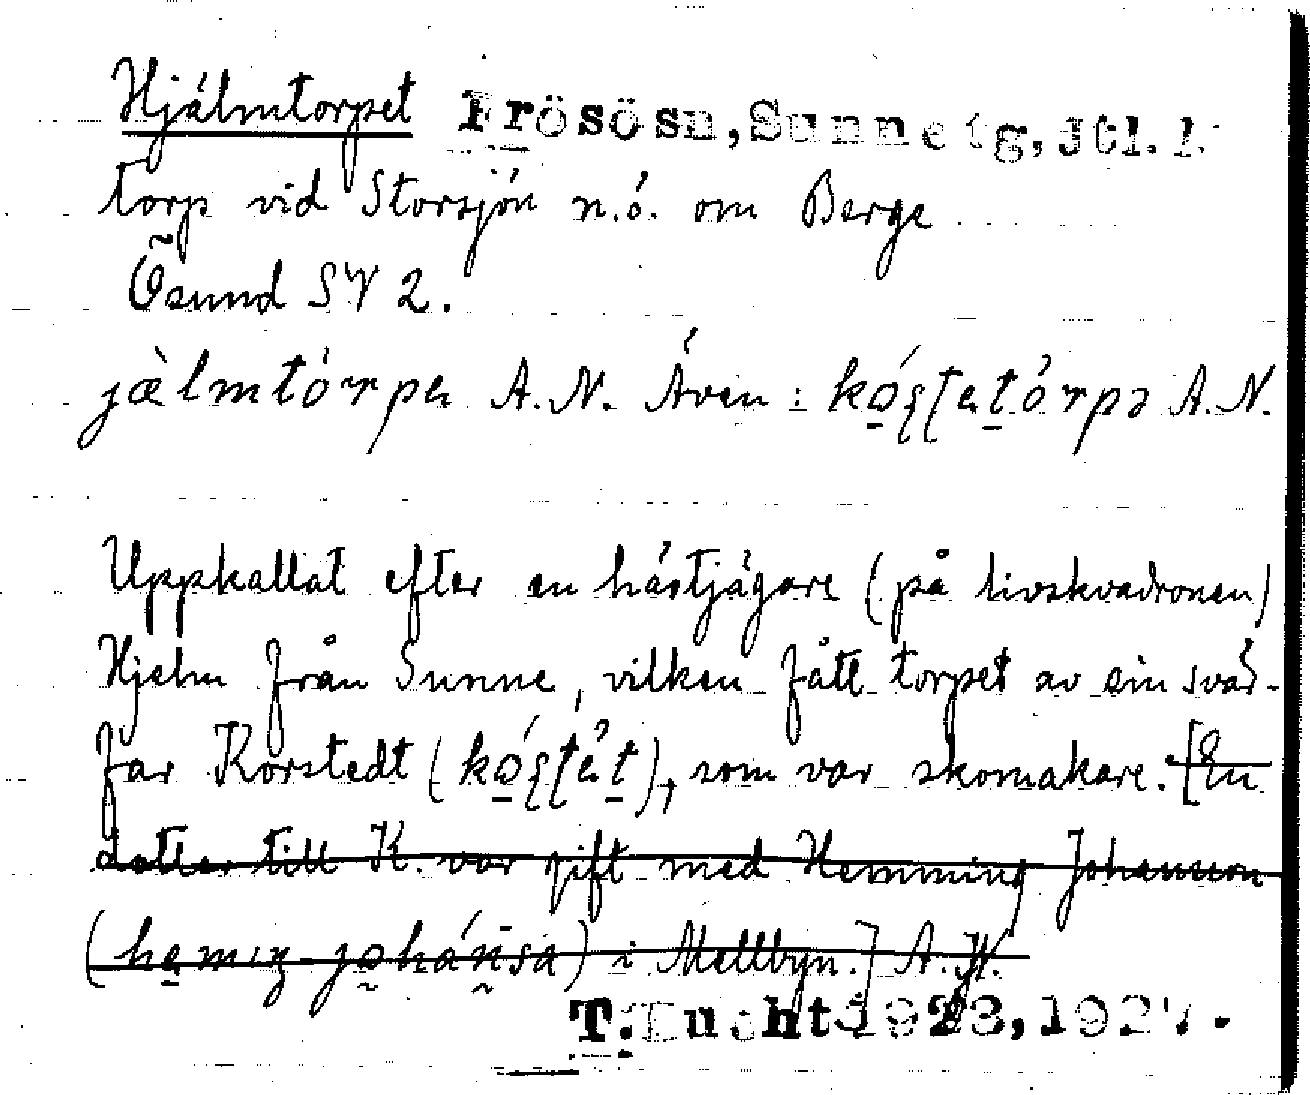 Hjälmtorpet Frösösn, Sunne tg, Jtl. l.
torp vid Storsjön n.ö. om Berge
Ösund SV 2.
jæ̀lmtórpa A.N. Även: kóştatórpə A.N.
Uppkallat efter en hästjägare (på livskvadronen)
Hjelm från Sunne, vilken fått torpet av sin svär-
far Korstedt (), som var skomakare. [En
dotter till K. var gift med Hemming Johansson
() i Mellbyn.] A.N.
T. Bucht 1923, 1927.